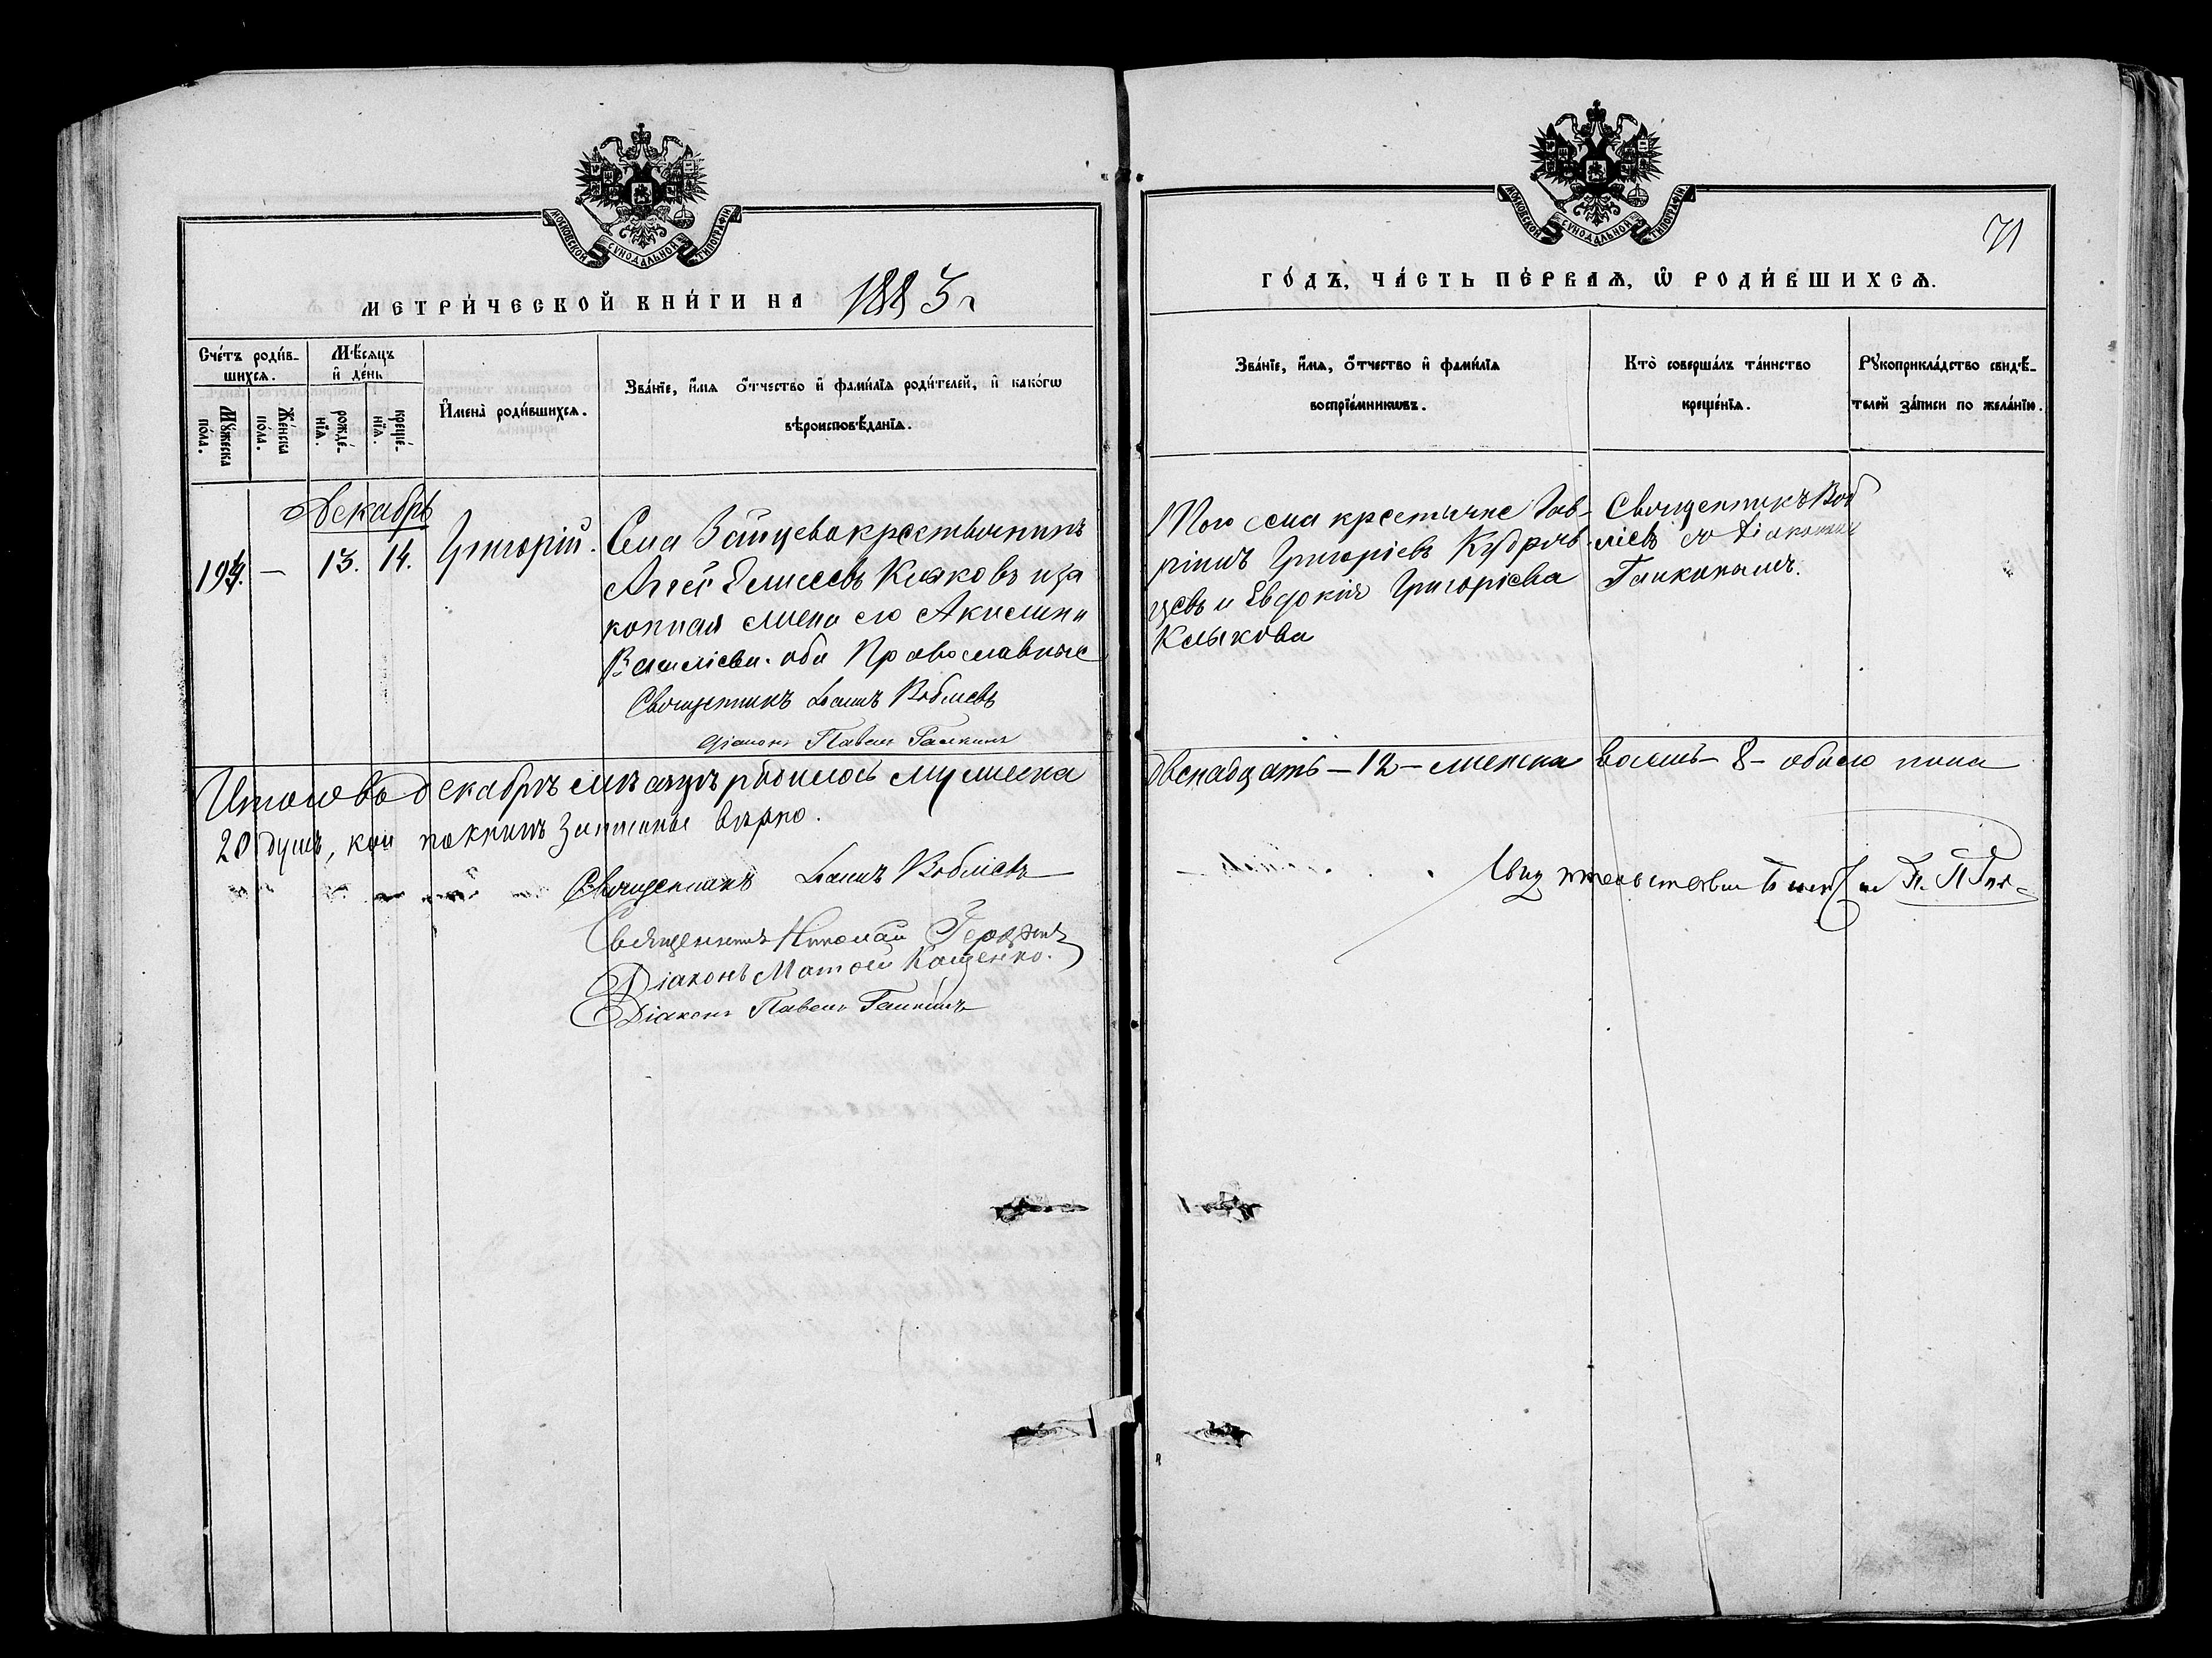 МОСКОВСКОЙ СУНОДАЛЬНОЙ ТИПОГРАФІИ
МЕТРИ́ЧЕСКОЙ КНИ́ГИ НА 1885 г
Сче́тъ роди́в-
шихсѧ.
Мꙋ́жеска
по́ла.
Же́нска
по́ла.
Мѣ́сѧцъ
и҆ де́нь
рожде́-
нїѧ.
креще́-
нїѧ.
И҆мена̀ роди́вшихсѧ.
Зва́нїе, и҆́мѧ ѻ҆́тчество и҆ фами́лїѧ роди́телей, и҆ како́гѡ
вѣроисповѣ́данїѧ.
Декабрь
194. — 13. 14. Григорій.
Села Зайцева крестьянинъ
Елисеевъ и за
конная жена его Акилина
Василіева. оба Православные
Священникъ Іоаннъ
діаконъ Павелъ Галкинъ
Итого въ декабрѣ мѣсяцѣ родилось мужеска
20 душъ, кои по книгѣ записаны вѣрно.
Священникъ Іоаннъ
Священникъ Николай
Діаконъ Матѳей Кащенко.
Діаконъ Павелъ Галкинъ
МОСКОВСКОЙ СУНОДАЛЬНОЙ ТИПОГРАФІИ
71
ГО́ДЪ, ЧА́СТЬ ПЕ́РВАѦ, Ѡ҆ РОДИ́ВШИХСѦ.
Зва́нїе, и҆́мѧ, ѻ҆́тчество и҆ фами́лїѧ
воспрїе́мникѡвъ.
Кто̀ соверша́лъ та́инство
креще́нїѧ.
Рꙋкоприкла́дство свидѣ́-
телей за́писи по жела́нїю.
Того села крестьяне Гав-
ріилъ Григоріевъ Кудряв-
цевъ и Евдокія Григоріева
Клыкова
Священникъ
съ діакономъ
Галкинымъ.
двенадцать – 12 – женска восемь – 8 – обоего пола